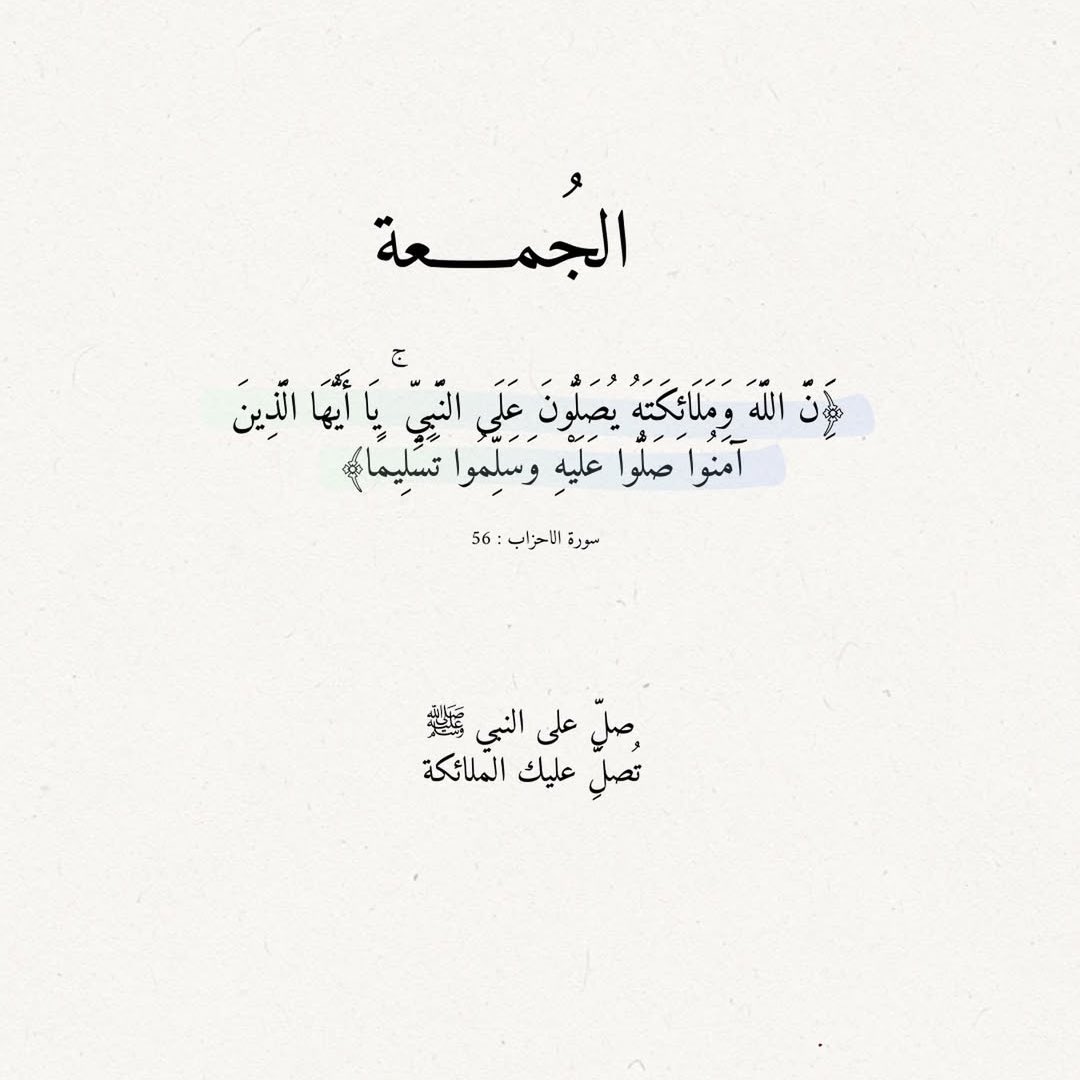 الجُمـــــعة
﴿َنَّ اللَّهَ وَمَلَائِكَتَهُ يُصَلُّونَ عَلَى النَّبِيِّ ۚ يَا أَيُّهَا الَّذِينَ
آمَنُوا صَلُّوا عَلَيْهِ وَسَلِّمُوا تَسْلِيمًا﴾
سورة الاحزاب : 56
صلّ على النبي ﷺ
تُصلِّ عليك الملائكة